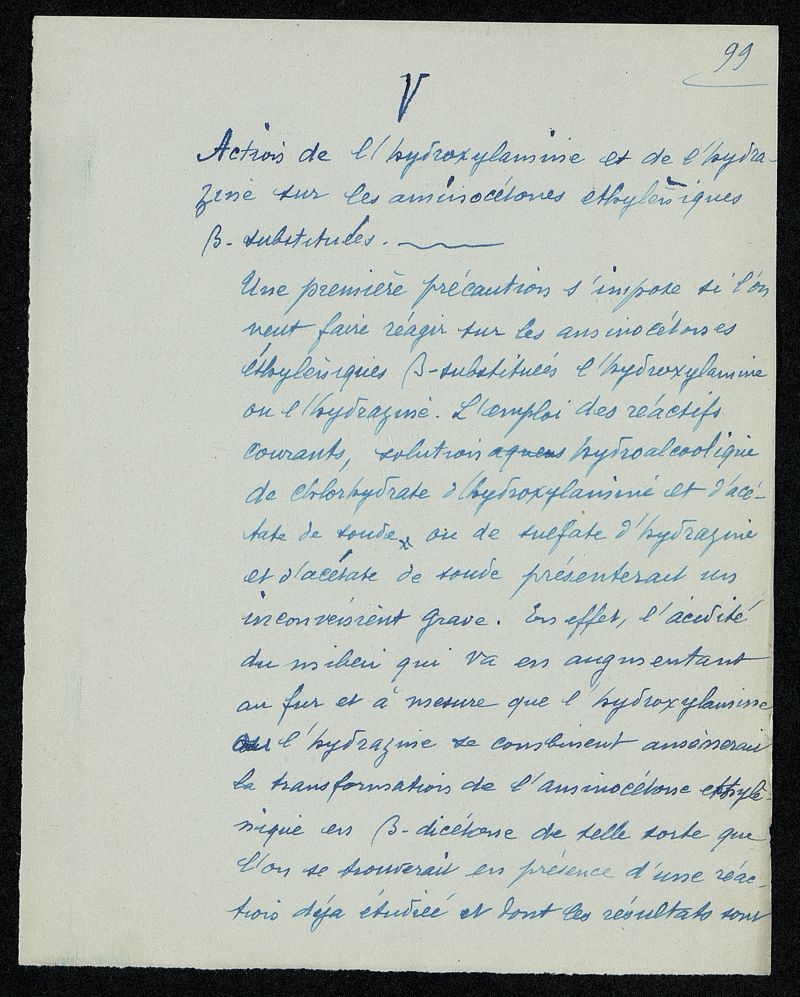 99
V
Action de l'hydroxylamine et de l'hydra-
zine sur les aminocétones éthyléniques
β-substituées.
Une première précaution s'impose si l'on
veut faire réagir sur les aminocétones
éthyléniques β-substitués l'hydroxylamine
ou l'hydrazine. L'emploi des réactifs
courants, solution aqueus hydroalcoolique
de chlorhydrate d'hydroxylamine et d'acé-
tate de soude, ou de sulfate d'hydrazine
et d'acétate de soude présenterait un
inconvénient grave. En effet, l'acidité
du milieu qui va en augmentant
au fur et à mesure que l'hydroxylamine
ou l'hydrazine se combinent amènerait
la transformation de l'aminocétone éthylé-
nique en β-dicétone de telle sorte que
l'on se trouverait en présence d'une réac-
tion déja étudiée et dont les résultats sont